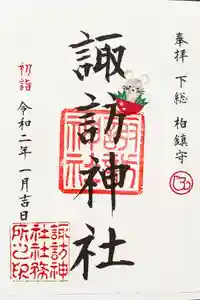 奉拝 下総 柏鎮守
諏訪神社
初詣
令和二年 一月吉日
諏訪神
社社務
所之印